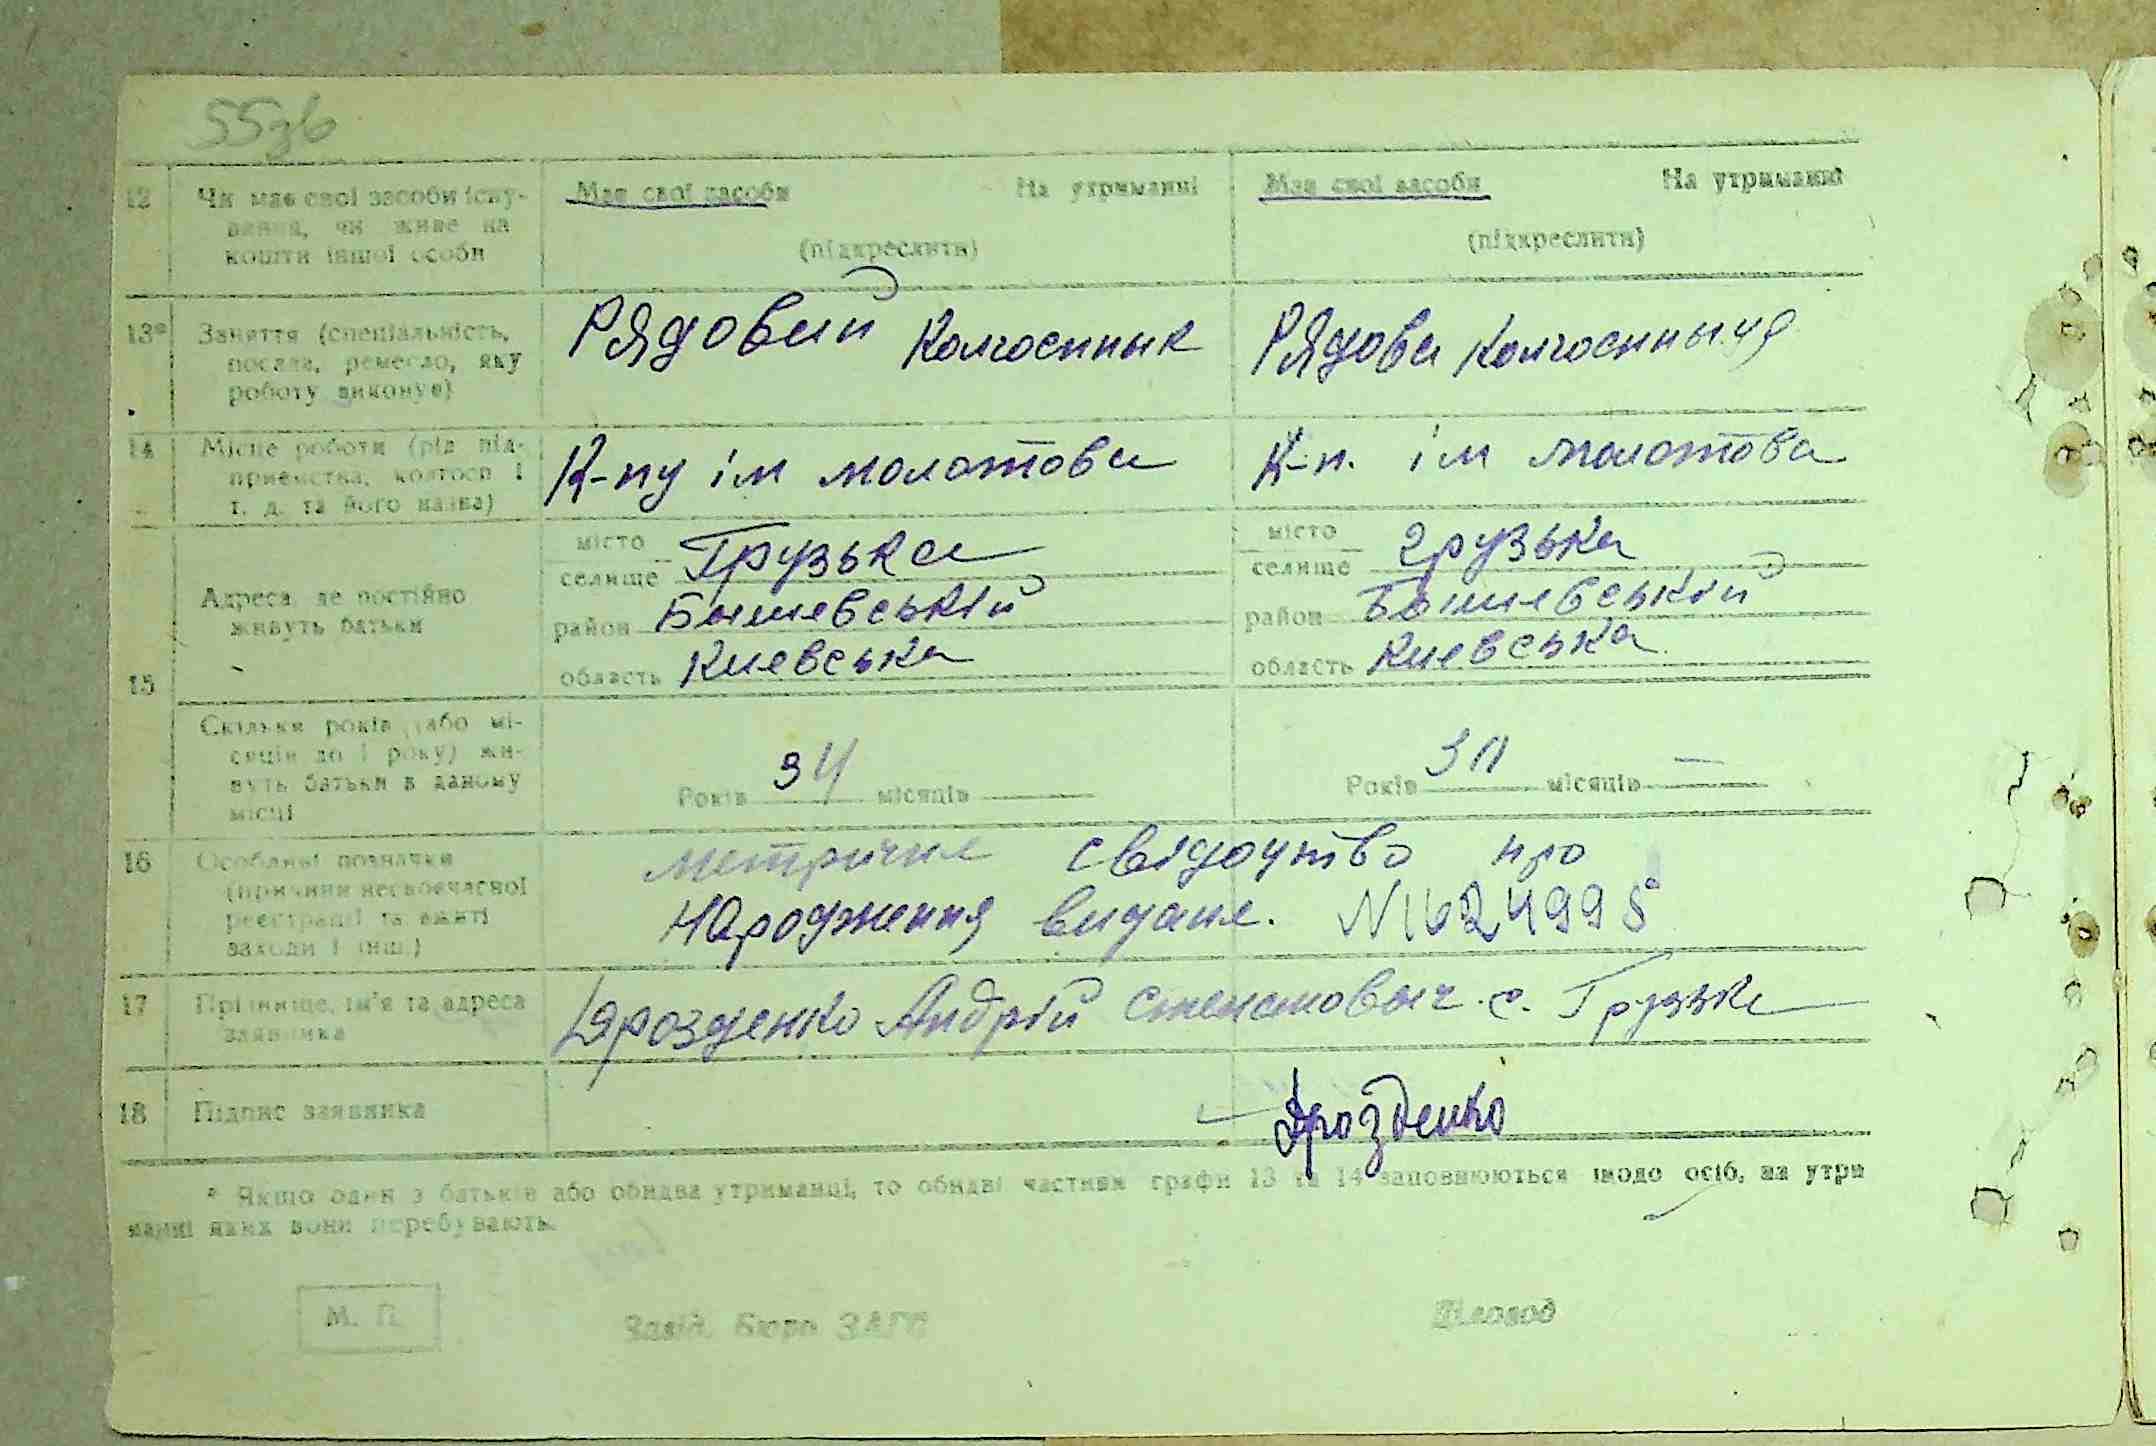 55зв
12 Чи має свої засоби існу- Має свої засоби На утриманні Має свої засоби На утриманні
вання, чи живе на
кошти іншої особи (підкреслити) (підкреслити)
13* Заняття (спеціальність, Рядовий колгоспнык Рядова колгоспныця
посада, ремесло, яку
роботу виконує)
14 Місце роботи (рід під- К-пу ім молотова К-п. ім молотова
приємства, колгосп і
т. д. та його назва)
місто Грузька місто Грузька
селище селище
Адреса, де постійно район Бышевській район Бышевській
живуть батьки
15 область Киевська область Киевська
Скільки років (або мі-
сяців до 1 року) жи-
вуть батьки в даному Років 34 місяців Років місяців —
місці
16 Особливі позначки метричне свідоцтво про
(причини несвоєчасної
реєстрації та вжиті народження видане. №
заходи і інш.)
17 Прізвище, ім'я та адреса Дрозденко Андрій Степанович. с. Грузька
заявника
18 Підпис заявника Дрозденко
* Якщо один з батьків або обидва утриманці, то обидві частини графи 13 та 14 заповнюються щодо осіб, на утри
манні яких вони перебувають.
М. П. Завід. Бюро ЗАГС Діловод